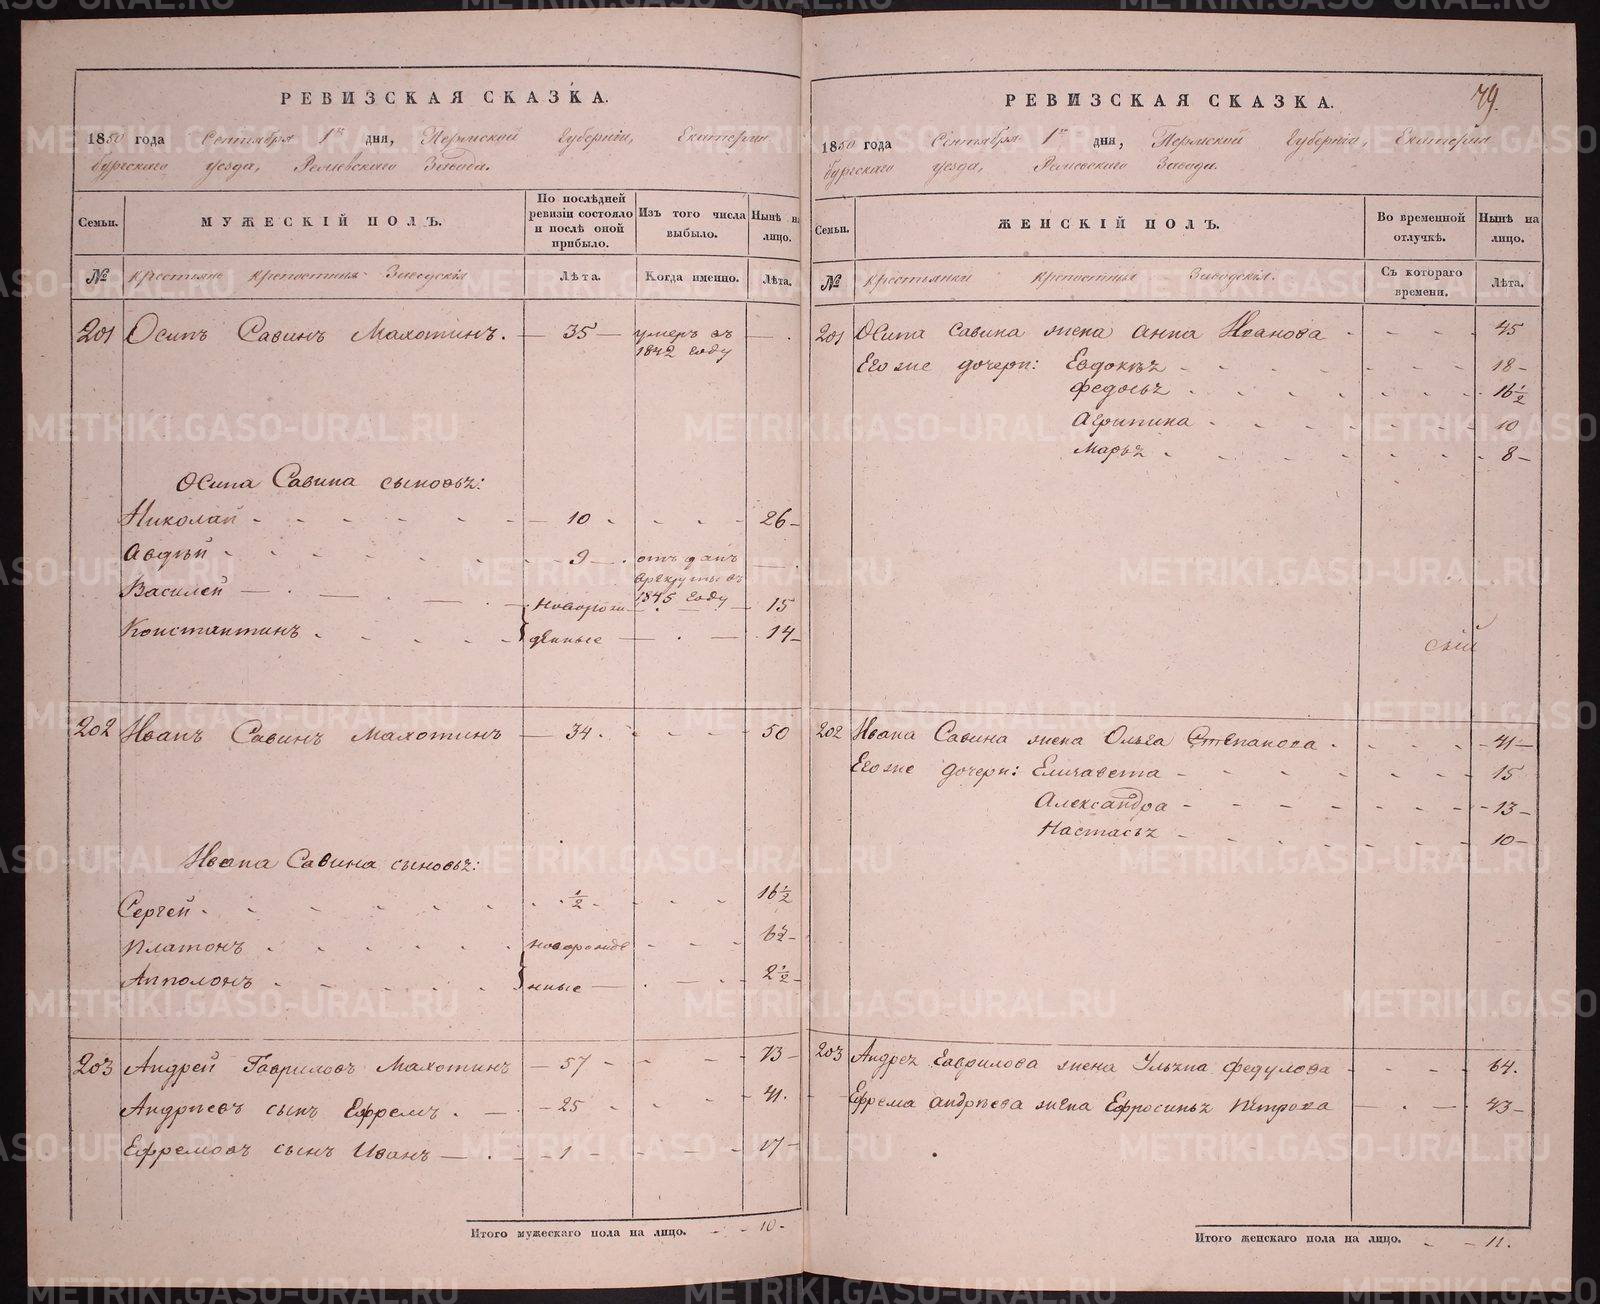 РЕВИЗСКАЯ СКАЗКА.
1850 года Сентября 1го дня, Пермской Губерніи, Екатерин
бургскаго уезда, Режевскаго Завода.
Семьи.
МУЖЕСКІЙ ПОЛЪ.
По послѣдней ревизіи состояло и послѣ оной прибыло.
Изъ того числа выбыло.
Нынѣ на лицо.
№
крестьяне крепостные Заводскія
Лѣта.
Когда именно.
Лѣта.
201 Осипъ Савинъ Махотинъ. — 35 — умеръ въ — .
1842 году
Осипа Савина сыновья:
Николай - 10 - 26 -
Авдѣй - 9 - отъ данъ — .
врекруты въ
1845 году
Василей — новорож — 15
Константинъ - денные — 14 -
202 Иванъ Савинъ Махотинъ — 34 - 50
Ивана Савина сыновья:
Сергей - ½ - 16½
Платонъ - новорожде -
Апполонъ - нные — 2½ -
203 Андрей Гавриловъ Махотинъ — 57 - 73 -
Андрѣевъ сынъ Ефремъ . — 25 - 41 .
Ефремовъ сынъ Иванъ — 1 - 17 -
Итого мужескаго пола на лицо. - - 10 -
79.
РЕВИЗСКАЯ СКАЗКА.
1850 года Сентября 1го дня, Пермской Губерніи, Екатерин
бургскаго уезда, Режевскаго Завода.
Семьи.
ЖЕНСКІЙ ПОЛЪ.
Во временной отлучкѣ.
Нынѣ на лицо.
№
крестьянки крепостныя Заводскія.
Съ котораго времени.
Лѣта.
201 Осипа Савина жена Анна Иванова - 45
Его же дочери: Евдокья - 18 -
Федосья - 16½
Агрипина - 10
Марья - 8 -
202 Ивана Савина жена Ольга Степанова - 41 —
Его же дочери: Елизавета - 15
Александра - 13 -
Настасья - 10 -
203 Андрея Гаврилова жена Ульяна Федулова - 64.
Ефрема Андрѣева жена Ефросинья Петрова — . — 43 -
Итого женскаго пола на лицо. - - 11.
METRIKI.GASO-URAL.RU